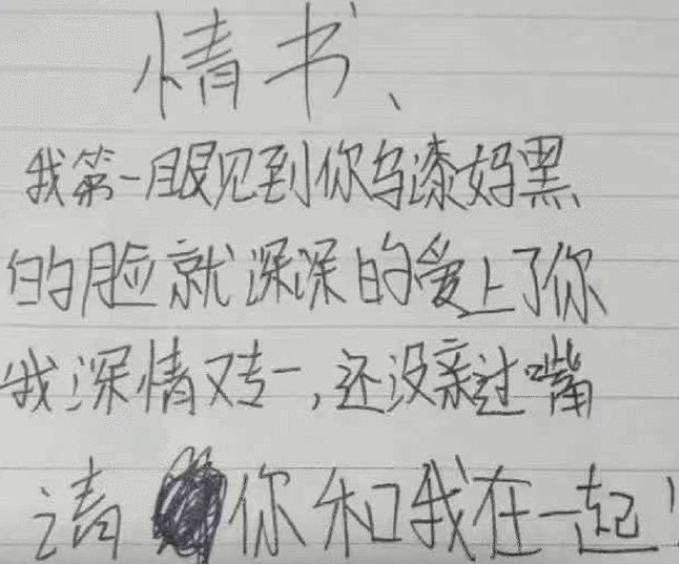 情书、
我第一眼见到你乌漆妈黑
的脸就深深的爱上了你
我深情又专一,还没亲过嘴
请你和我在一起!